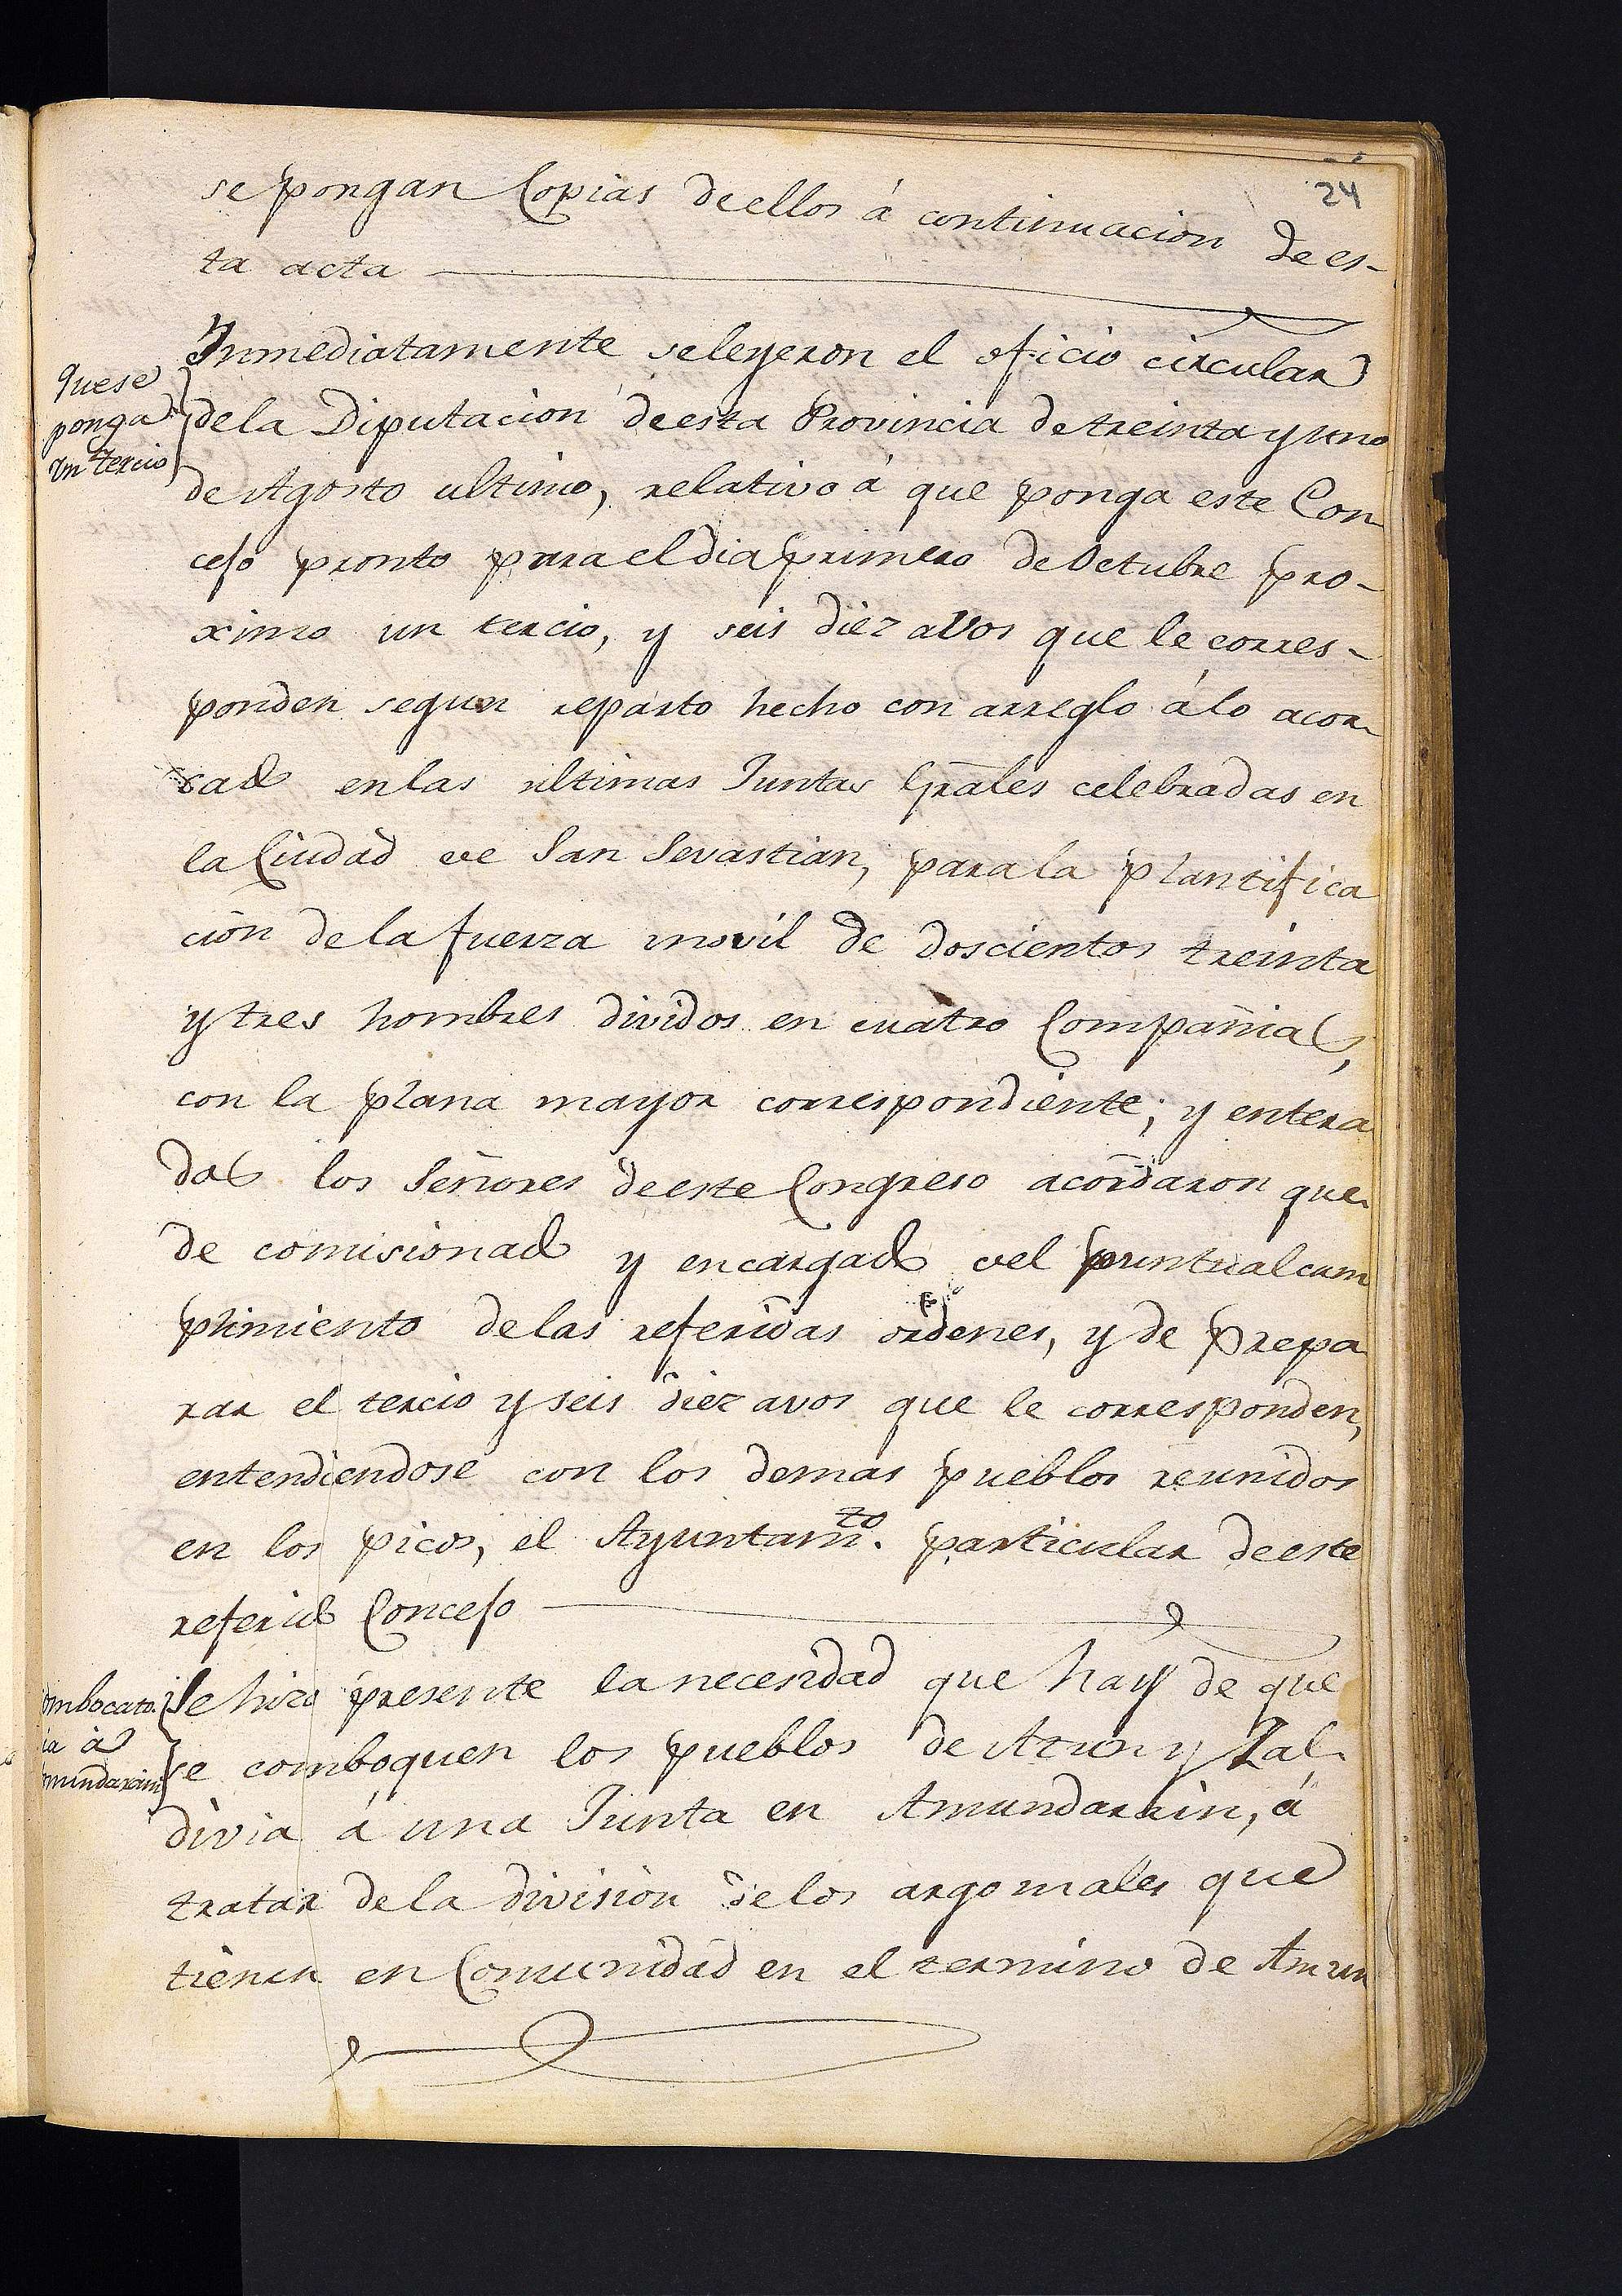 24
se pongan Copias de ellos á continuacion de es-
ta acta
Que se
ponga
un tercio
Inmediatamente se leyeron el oficio circular
de la Diputacion de esta Provincia de treinta y uno
de Agosto ultimo, relativo á que ponga este Con
cejo pronto para el dia primero de Octubre pro-
ximo un tercio, y seis diez avos que le corres-
ponden segun reparto hecho con arreglo á lo acor-
dado en las ultimas Juntas Grāles celebradas en
la Ciudad de San Sevastian, para la plantifica
cion de la fuerza movil de doscientos treinta
y tres hombres dividos en cuatro Compañias,
con la plana mayor correspondiente; y entera
dos los Señores de este Congreso acordaron que-
de comisionado y encargado del puntual cum
plimiento de las referidas ordenes, y de prepa
rar el tercio y seis diez avos que le corresponden,
entendiendose con los demas pueblos reunidos
en los picos, el Ayuntamto. particular de este
referido Concejo
ombocato-
ia á
mundarain
Se hizo presente la necesidad que hay de que
se comboquen los pueblos de Atun y Zal-
divia á una Junta en Amundarain, á
tratar de la division de los argomales que
tienen en Comunidad en el termino de Amun